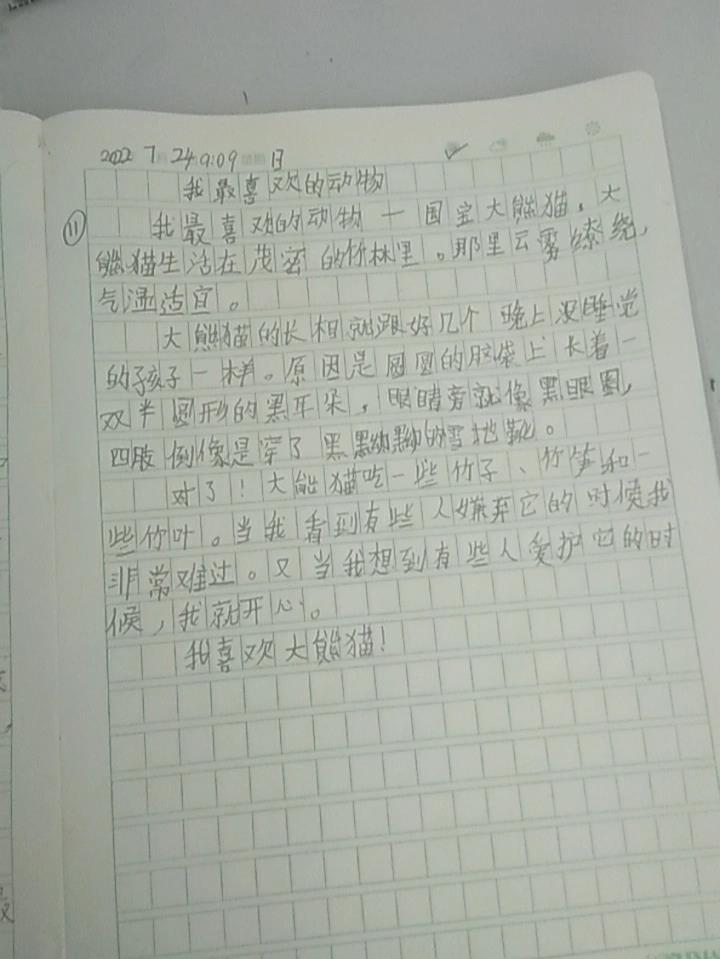 2022 7月 24 9:09 星期日
我最喜欢的动物
⑪ 我最喜欢的动物一国宝大熊猫。大
熊猫生活在茂密的竹林里。那里云雾缭绕,
气温适宜。
大熊猫的长相就跟好几个晚上没睡觉
的孩子一样。原因是圆圆的脑袋上长着一
双半圆形的黑耳朵,眼睛旁就像黑眼圈,
四肢倒像是穿了黑黝黝的雪地靴。
对了!大能猫吃一些竹子、竹笋和一
些竹叶。当我看到有些人嫌弃它的时候我
非常难过。又当我想到有些人爱护它的时
候,我就开心。
我喜欢大熊猫!